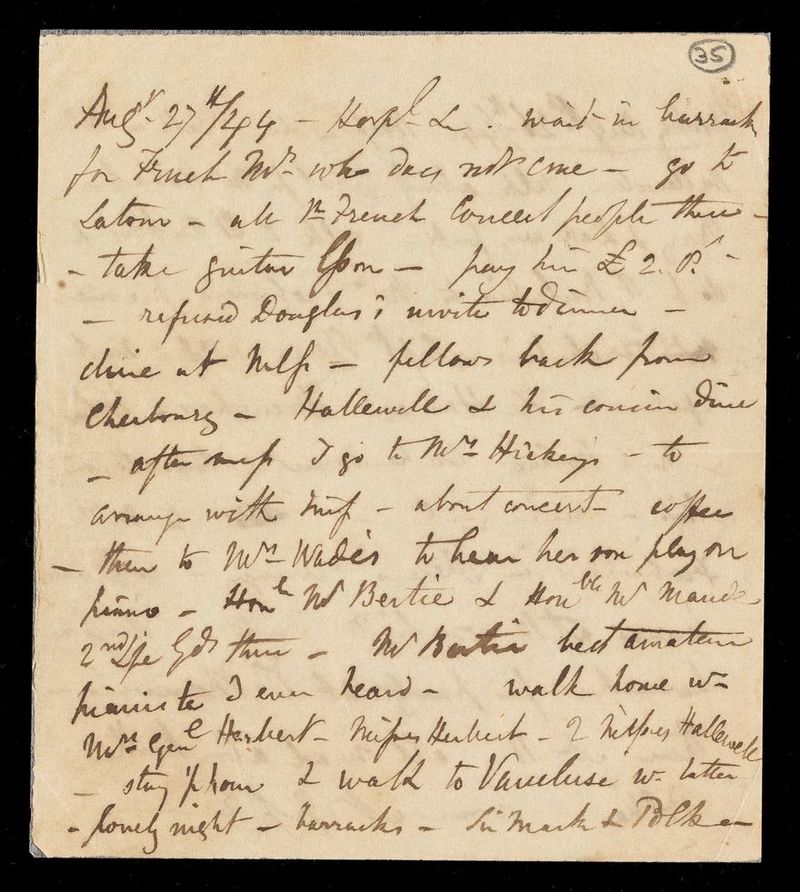 35
Augt 27th/44 - Hospl & . wait in barrack
for French Mr. who does not come - go to
Latour - all the French Concert people there -
- take guitar lesson - pay him £2.
- refused Douglas's invite to dinner -
dine at Mess - fellows back from
Cherbourg - Hallewell & his cousin dine
- after mess I go to Mrs Hickeys - to
arrange with - about concert - coffee
- then to Mrs Wade's to hear her son play on
piano - Honble Mr Bertie & Honble Mr Maude
2nd Life Gds there - Mr Bertie best amateur
pianiste I ever heard - walk home w-
Mrs Genl Herbert - Misses Herbert - 2 Misses Hallewell
- stay ½ hour & walk to Vaucluse w. latter
- lovely night - barracks - Sir Mark & Polka -